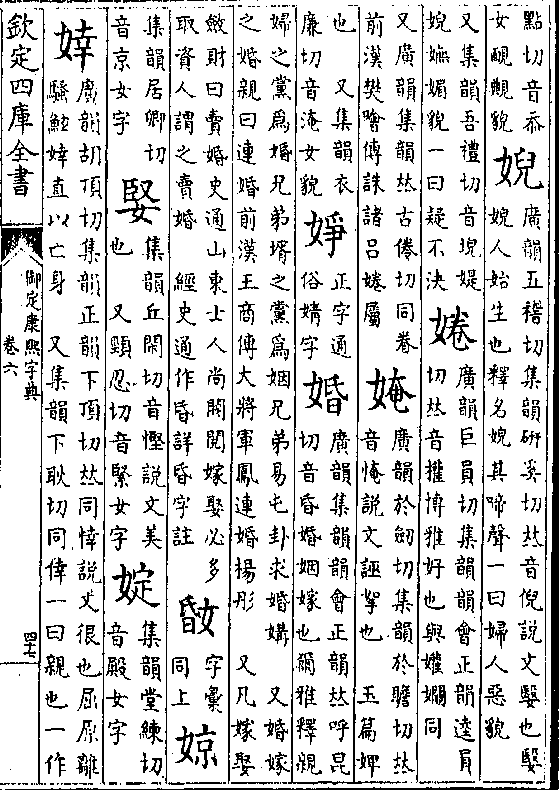 點切音忝
女靦貌
婗
廣韻五稽切集韻研奚切𠀤音倪說文嫛也嫛
婗人始生也釋名婗其啼聲一曰婦人惡貌
又集韻吾禮切音堄媞
婗嫵媚貌一曰疑不決
婘
廣韻巨員切集韻韻會正韻逵員
切𠀤音權博雅好也與孉嬽同
又廣韻集韻𠀤古倦切同眷
前漢樊噲傳誅諸呂婘屬
㛪
廣韻於劒切集韻於贍切𠀤
音俺說文誣挐也 玉篇婢
也 又集韻衣
廉切音淹女貌
婙
正字通
俗婧字
婚
廣韻集韻韻會正韻𠀤呼昆
切音昏婚姻嫁也爾雅釋親
婦之黨爲婚兄弟壻之黨爲姻兄弟易屯卦求婚媾 又婚嫁
之婚親曰連婚前漢王商傳大將軍鳳連婚楊彤 又凡嫁娶
斂財曰賣婚史通山東士人尚閥閱嫁娶必多
取資人謂之賣婚 經史通作昏詳昏字註
㛰
字彙
同上
婛
集韻居卿切
音京女字
婜
集韻丘閑切音慳說文美
也 又頸忍切音緊女字
婝
集韻堂練切
音殿女字
婞
廣韻胡頂切集韻正韻下頂切𠀤同悻說文很也屈原離
騷鯀婞直以亡身 又集韻下耿切同倖一曰親也一作
欽定四庫全書
御定康熙字典
卷六
四七